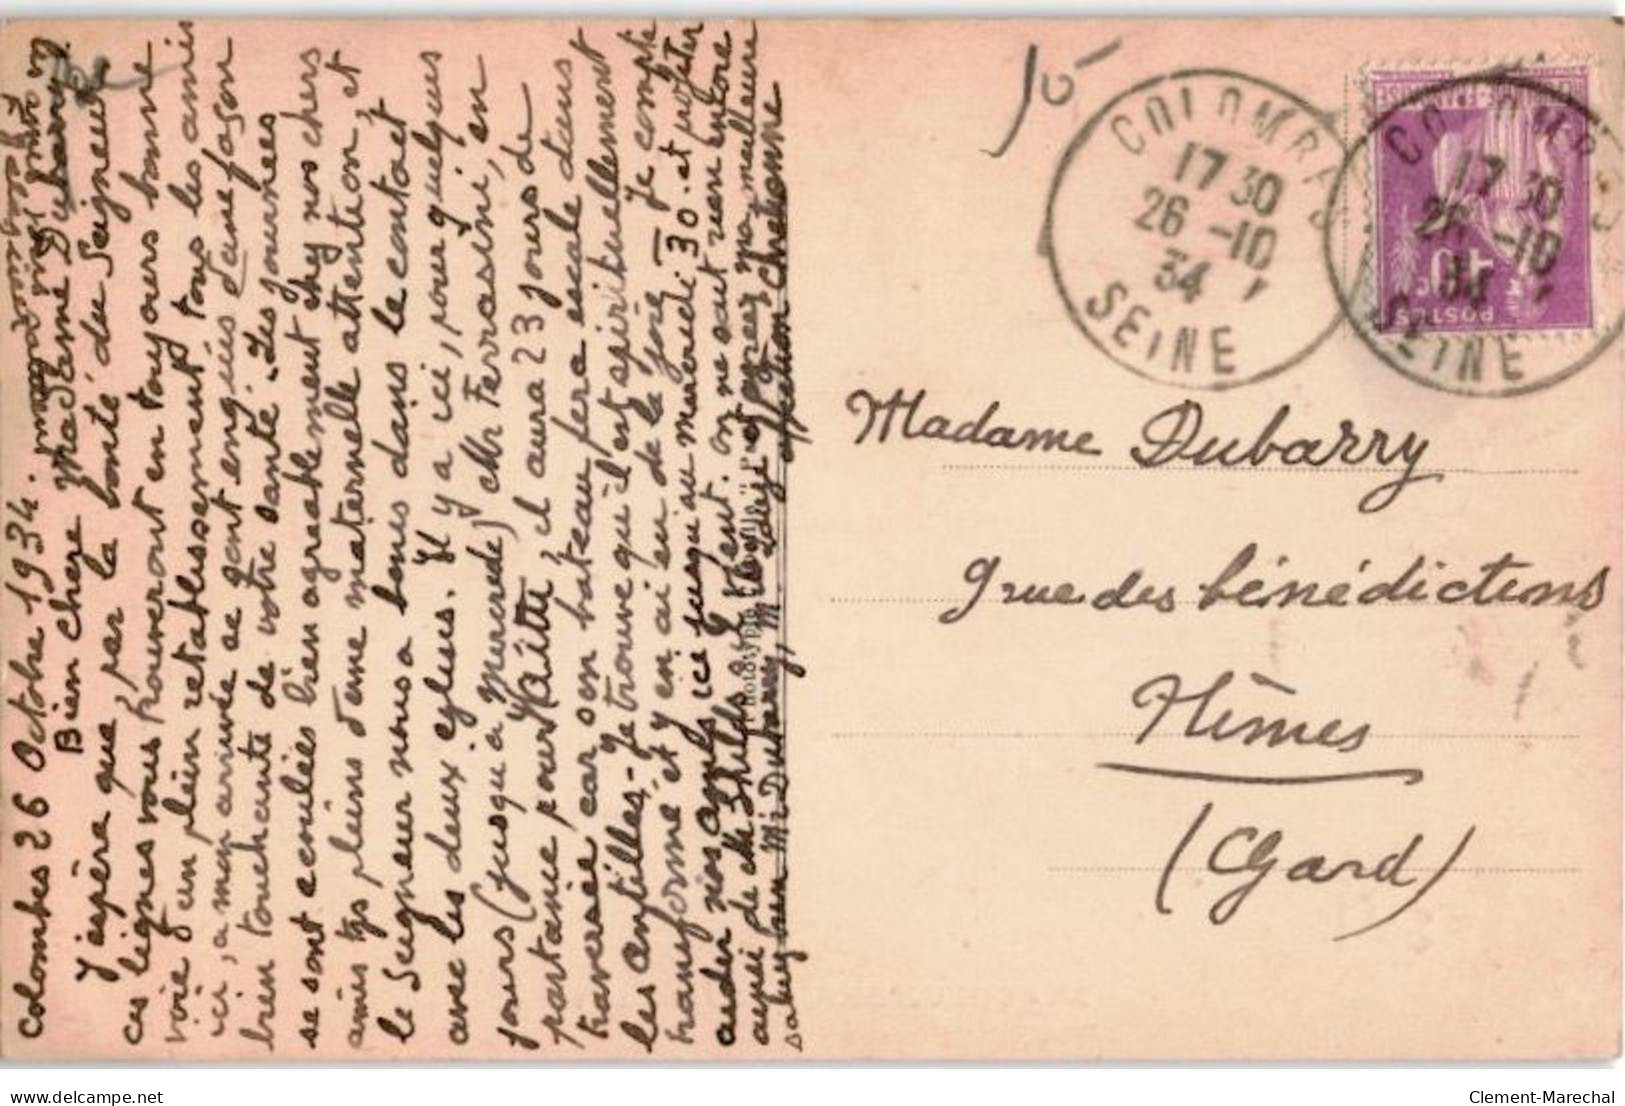 Colombes 26 Octobre 1934.
Bien chère Madame Dubarry
J'espère que, par la bonté du Seigneur
ces lignes vous trouveront en toujours bonne
voie d'un plein rétablissement, tous les amis
ici, a mon arrivée se sont enquis d'une façon
bien touchante de votre santé. Les journées
se sont écoulées bien agréablement chy nos chers
amis tjs pleins d'une maternelle attention, et
le Seigneur nous a bénis dans le contact
avec les deux Eglises. Il y a ici, pour quelques
jours (jusqu'a mercredi) Mr Ferrasini, en
partance pour Haïti, il aura 23 jours de
traversée car son bateau fera escale dans
les antilles - Je trouve qu'il est spirituellement
transformé et y en ai eu de la joie Je compte
aider nos amis ici jusqu'au mercredi 30. et profiter
aussi de Mr Shilds y vient. on ne sait rien encore
Saluez bien Mr Dubarry, et agréez ma meilleure
affection Chretienne
COLOMBES
17 30
26 -10
34
SEINE
COLOMBES
17 30
26 -10
34
SEINE
POSTES
40c
Madame Dubarry
9 rue des bénédictins
Nîmes
(Gard)
Clement-Marechal
delcampe.net